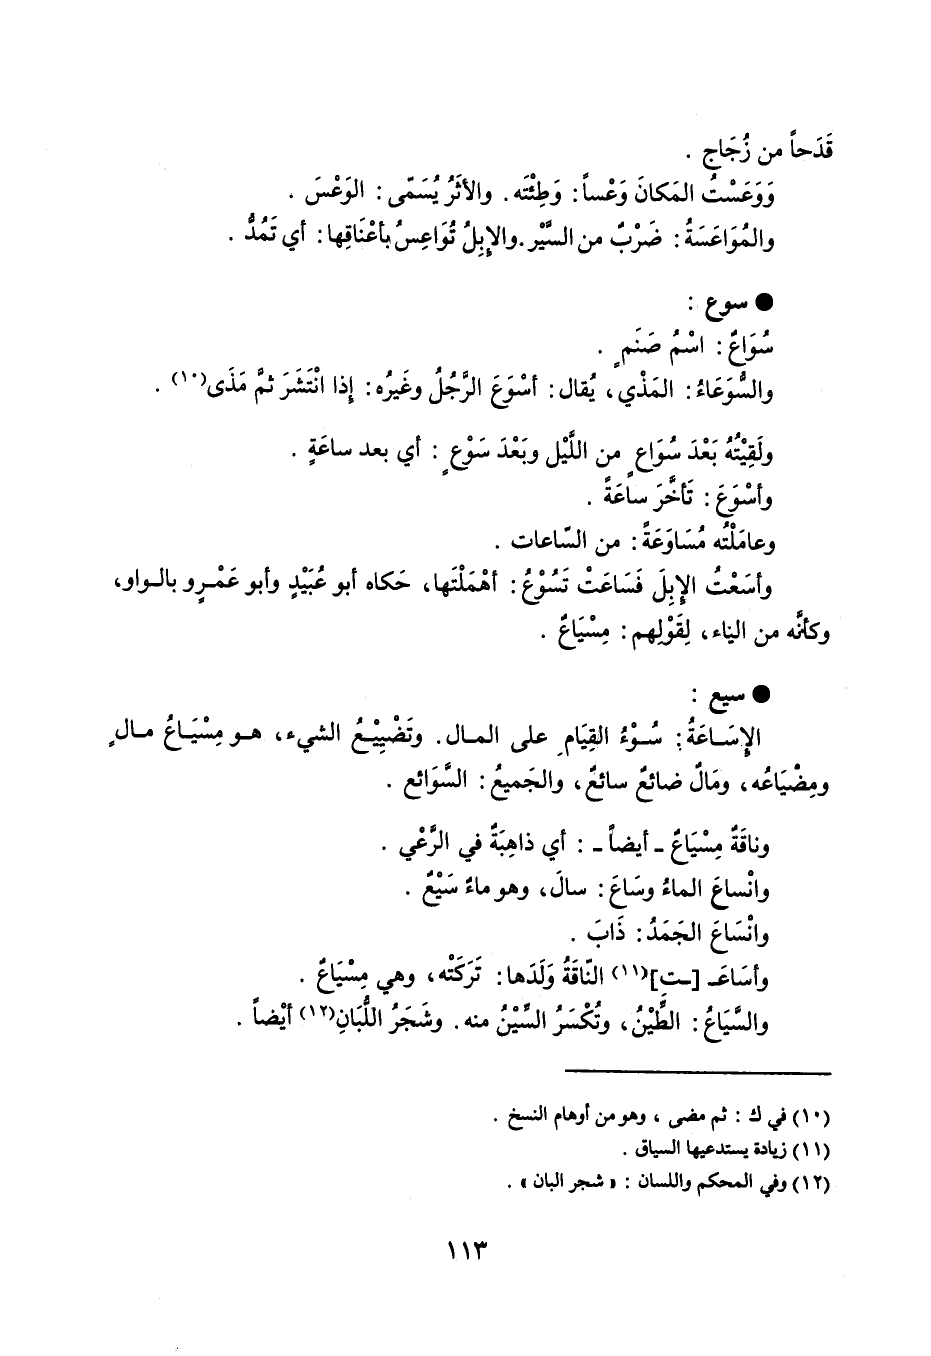 قَدَحاً من زُجَاجٍ .
وَوَعَسْتُ المَكانَ وَعْساً: وَطِئْتَه. والأثَرُ يُسَمّى: الوَعْسَ .
والمُوَاعَسَةُ: ضَرْبٌ من السَّيْر. والإبِلُ تُوَاعِسُ بأعْنَاقِها: أي تَمُدُّ .
● سوع :
سُوَاعٌ: اسْمُ صَنَمٍ .
والسُّوَعَاءُ: المَذْي، يُقال: أسْوَعَ الرَّجُلُ وغَيرُه: إذا انْتَشَرَ ثمَّ مَذَى(١٠) .
ولَقِيْتُهُ بَعْدَ سُوَاعٍ من اللَّيْل وبَعْدَ سَوْعٍ : أي بعد ساعَةٍ .
وأسْوَعَ: تَأخَّرَ ساعَةً .
وعامَلْتُه مُسَاوَعَةً: من السّاعات .
وأسَعْتُ الإبِلَ فَسَاعَتْ تَسُوْعُ: أهْمَلْتَها، حَكاه أبو عُبَيْدٍ وأبو عَمْرٍو بالواو،
وكأنَّه من الياء، لِقَوْلِهم: مِسْيَاعٌ .
● سيع :
الإسَاعَةُ: سُوْءُ القِيَامِ على المال. وتَضْيِيْعُ الشيء، هو مِسْيَاعُ مالٍ
ومِضْيَاعُه، ومَالٌ ضائعٌ سائعٌ، والجَميعُ: السَّوَائع .
وناقَةٌ مِسْيَاعٌ ـ أيضاً ـ : أي ذاهِبَةٌ في الرَّعْي .
وانْساعَ الماءُ وسَاعَ: سالَ، وهو ماءٌ سَيْعٌ .
وانْسَاعَ الجَمَدُ: ذَابَ .
وأسَاعَـ [ـت](١١) النّاقَةُ وَلَدَها: تَرَكَتْه، وهي مِسْيَاعٌ .
والسَّيَاعُ: الطِّيْنُ، وتُكْسَرُ السِّيْنُ منه. وشَجَرُ اللُّبَانِ(١٢) أيْضاً .
(١٠) في ك : ثم مضى ، وهو من أوهام النسخ .
(١١) زيادة يستدعيها السياق .
(١٢) وفي المحكم واللسان : « شجر البان » .
١١٣